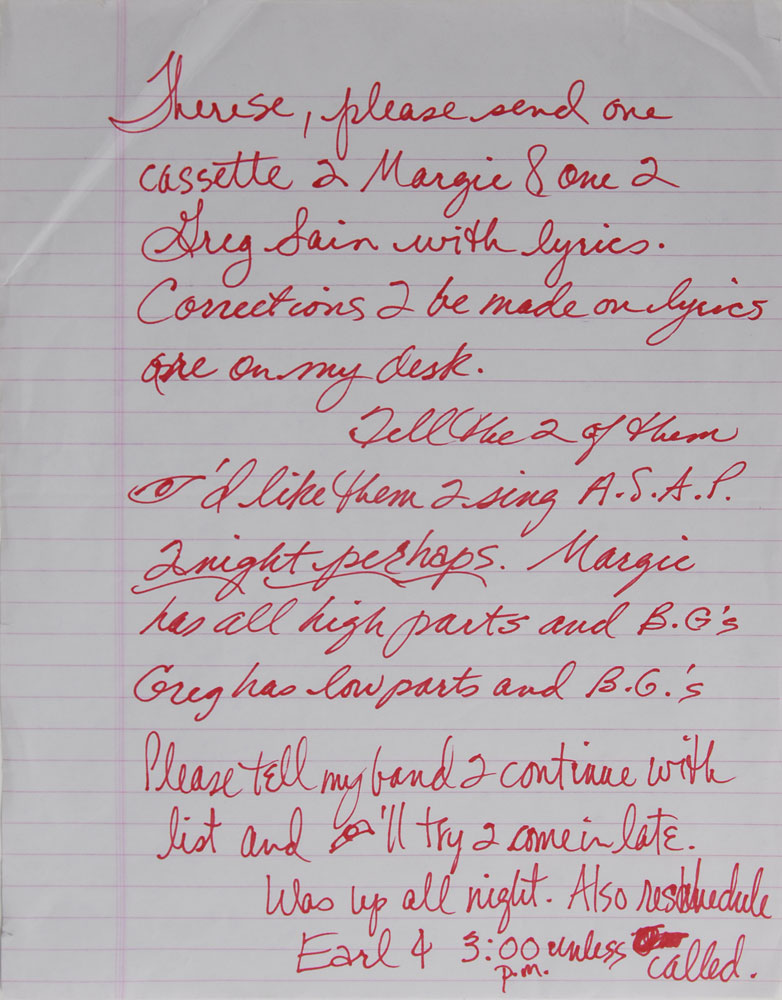 Therese, please send one
cassette 2 Margie & one 2
Greg Sain with lyrics.
Corrections 2 be made on lyrics
are on my desk.
Tell the 2 of them
👁'd like them 2 sing A.S.A.P.
2night perhaps. Margie
has all high parts and B.G's
Greg has low parts and B.G.'s
Please tell my band 2 continue with
list and 👁'll try 2 come in late.
Was up all night. Also reschedule
Earl 4 3:00 unless called.
p.m.